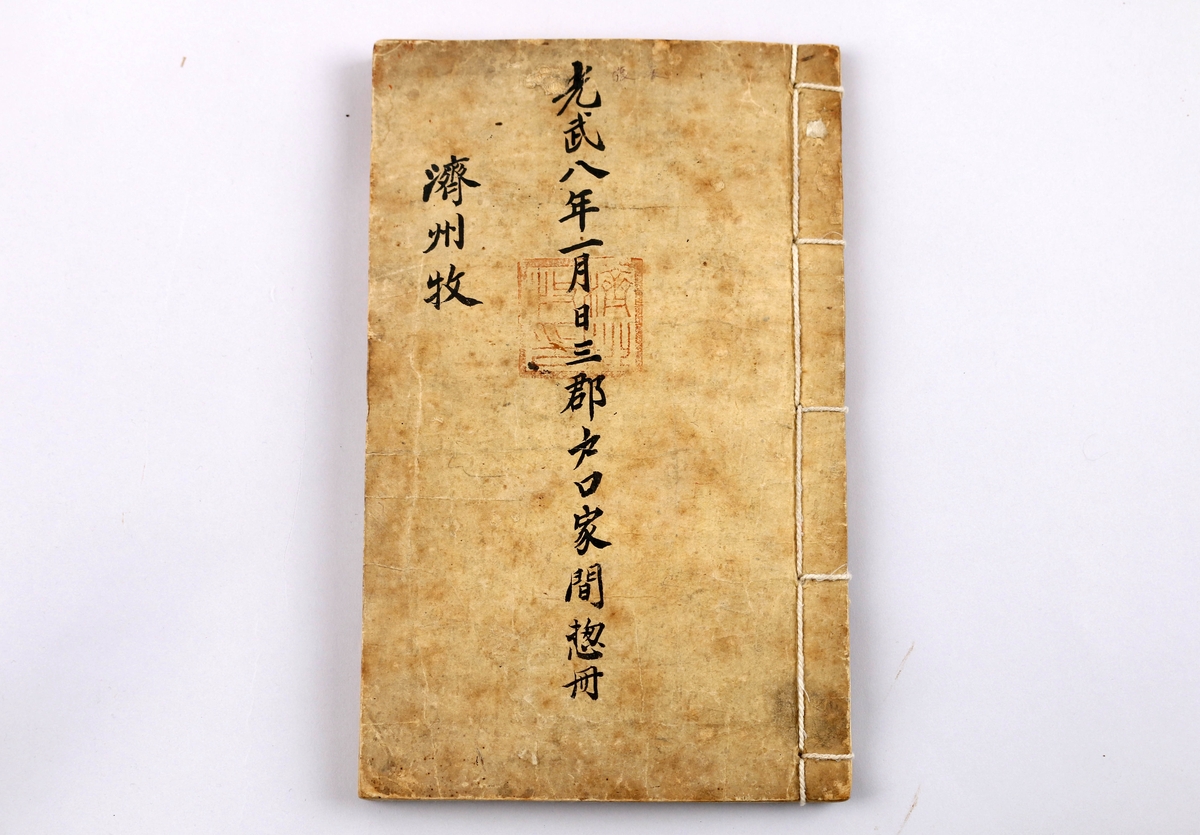 光武八年一月日三郡戶口家間摠冊
濟州牧